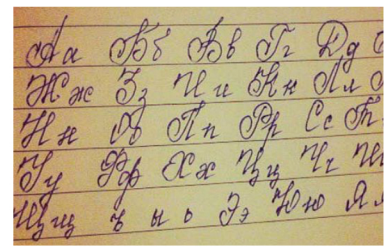 Аа Бб Вв Гг Дд
Жж Зз Ии Кк Лл
Нн Пп Рр Сс Т
Уу Фф Хх Цц Чч Ш
Щщ ъ ы ь Ээ Юю Яя